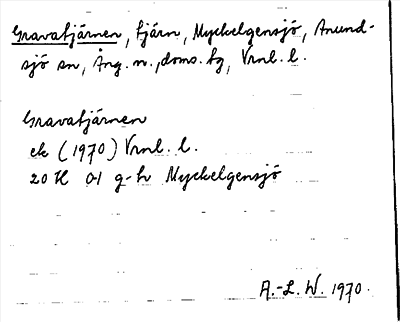 Gravatjärnen, tjärn, Myckelgensjö, Anund-
sjö sn, Ång. n., doms. fg, Vrnl. l.
Gravatjärnen
ek (1970) Vrnl. l.
20 H 0-1 g-h Myckelgensjö
A.-L. W. 1970.